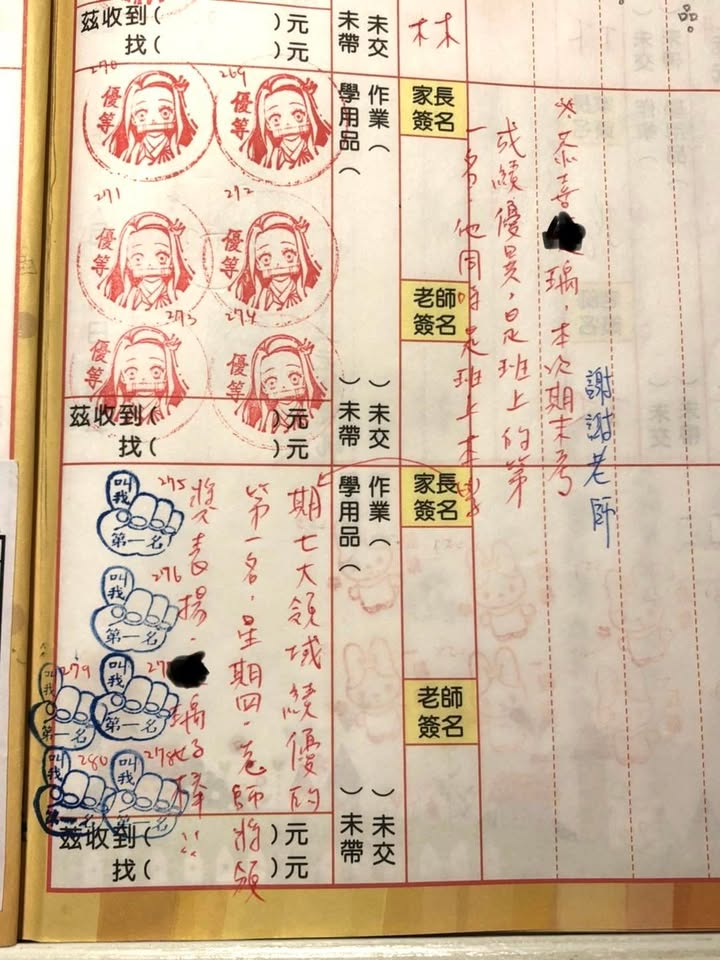 品。
茲收到(　　)元
找(　　)元
未交
未帶
林
※恭喜 瑀,本次期末考
成績優異,是班上的第
一名,他同時是班上本學
期七大領域績優的
第一名,星期四,老師將頒
獎表揚。 瑀好棒!!
謝謝老師
家長
簽名
老師
簽名
作業(　　)未交
學用品(　　)未帶
270
優等
269
優等
271
優等
272
優等
273
優等
274
優等
茲收到(　　)元
找(　　)元
家長
簽名
老師
簽名
作業(　　)未交
學用品(　　)未帶
275
叫我
第一名
276
叫我
第一名
叫我
第一名
279
叫我
第一名
278
叫我
280
叫我
第一名
茲收到(　　)元
找(　　)元